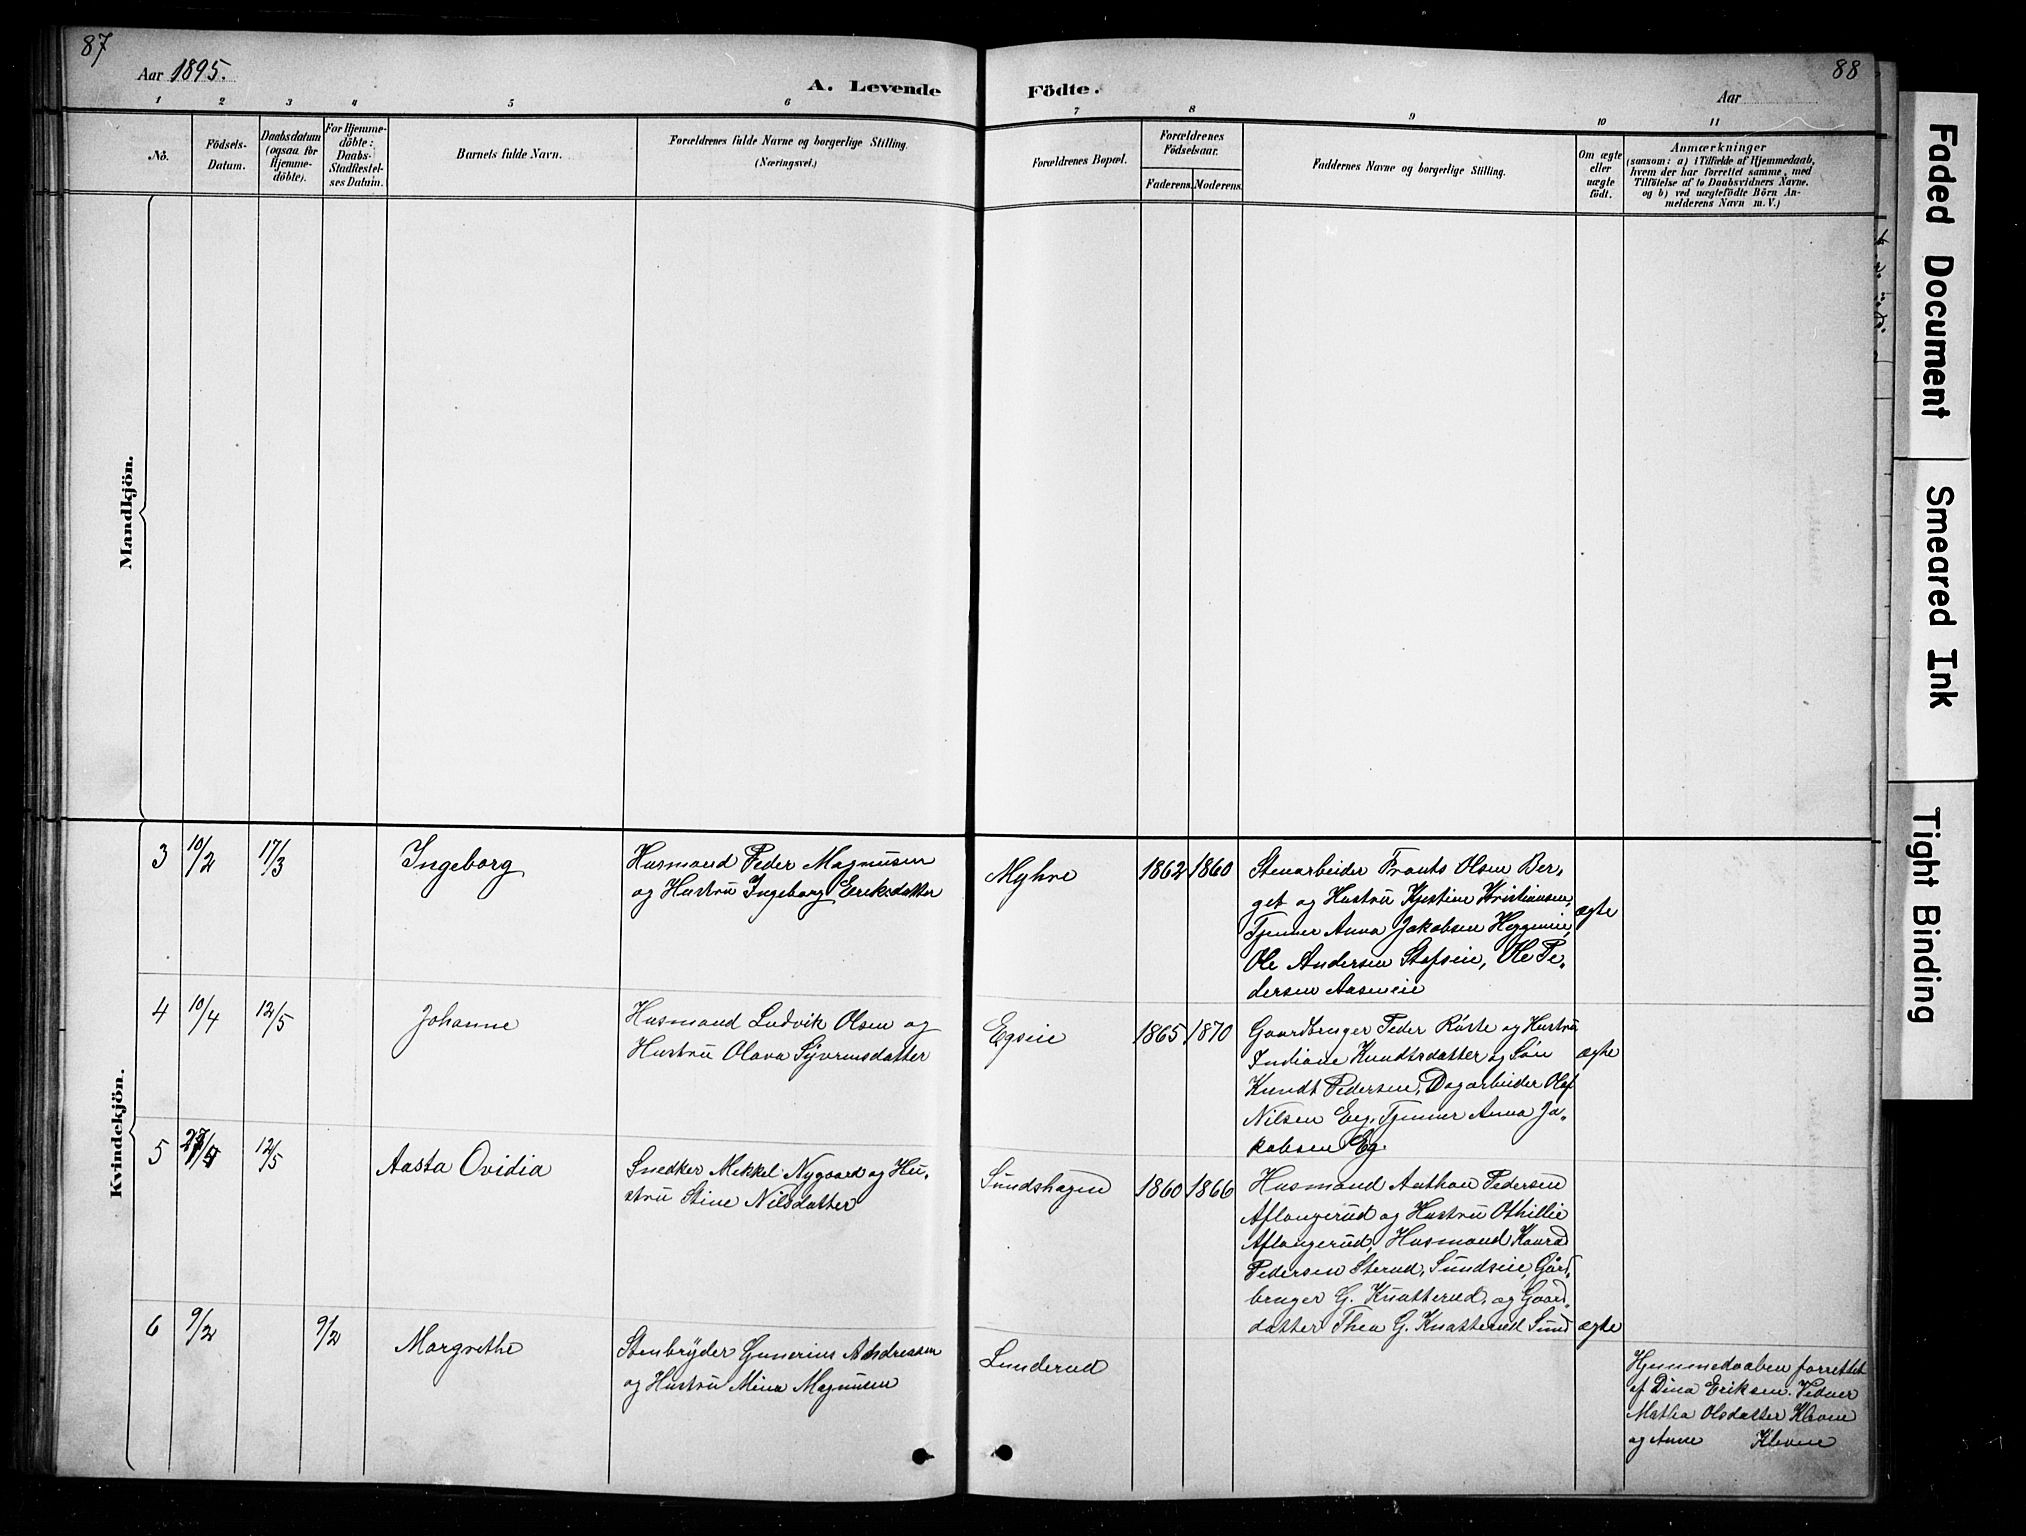 87
Aar 1895.
A. Levende
Födte.
Aar
88
1 2 3 4 5 6 7 8 9 10 11
No.
Födsels-
Datum.
Daabsdatum
(ogsaa for
Hjemme-
döbte).
For Hjemme-
döbte:
Daabs-
Stadfestel-
ses Datum.
Barnets fulde Navn.
Forældrenes fulde Navne og borgerlige Stilling.
(Næringsvei.)
Forældrenes Bopæl.
Forældrenes
Födselsaar.
Faderens. Moderens.
Faddernes Navne og borgerlige Stilling.
Om ægte
eller
uægte
födt.
Anmærkninger
(saasom: a) i Tilfælde af Hjemmedaab,
hvem der har forrettet samme, med
Tilföielse af to Daabsvidners Navne.
og b) ved uægtefödte Börn An-
melderens Navn m. V.)
Mandkjön.
Kvindekjön.
3
10/2
17/3
Ingeborg
Husmand Peder Magnusen
og Hustru Ingeborg Eriksdatter
Myhre
1862
1860
Stenarbeider Frants Olsen Ber-
get og Hustru Kjestine Kristiansen,
Tjener Anna Jakobsen Heggeneie,
Ole Andersen Stafseie, Ole Pe-
dersen Aasneie
ægte
4
10/4
12/5
Johanne
Husmand Ludvik Olsen og
Hustru Olava Syvrensdatter
Egseie
1865
1870
Gaardbruger Peder Röste og Hustru
Indiane Knudtsdatter og Sön
Knudt Pedersen, Dagarbeider Olaf
Nilsen Eeg, Tjener Anna Ja-
kobsen Eg.
ægte
5
12/5
Aasta Ovidia
Snedker Mikkel Nygaard og Hu-
stru Stine Nilsdatter
Sundshagen
1860
1866
Husmand Anthon Pedersen
Aflangerud og Hustru Othillie
Aflangerud, Husmand Konrad
Pedersen Sterud, Sundseie, Gård-
bruger G. Knatterud, og Gaard-
datter Thea G. Knatterud Sund
ægte
6
9/2
9/2
Margrethe
Stenbryder Gunerius Andreassen
og Hustru Mina Magnusen
Lunderud
Hjemmedaaben forrettet
af Dina Eriksen. Vidner
Mathea Olsdatter Kleven
og Anne Kleven
Faded Document
Smeared Ink
Tight Binding